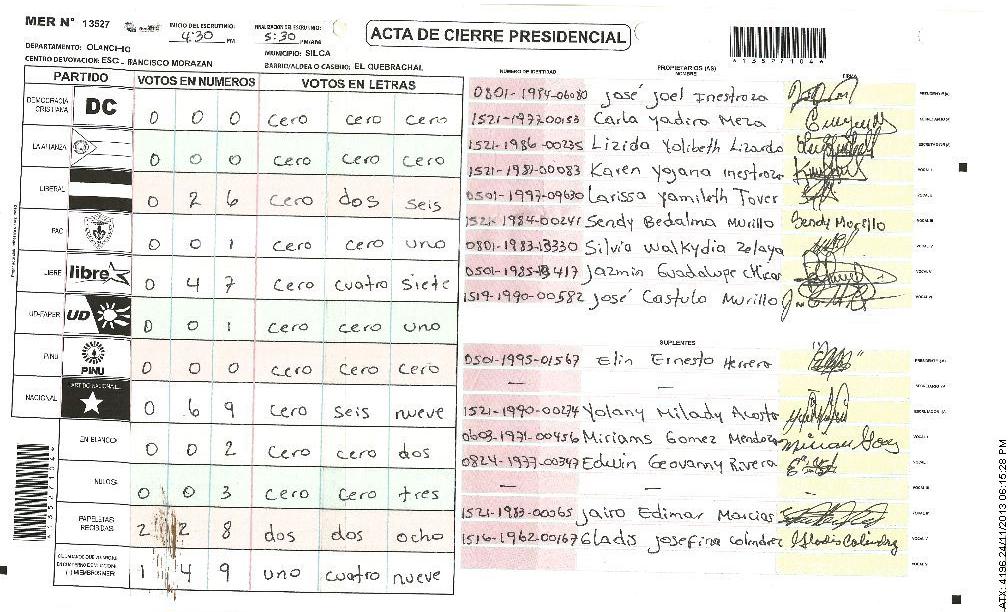 MER N° 13527
INICIO DEL ESCRUTINIO: 4:30 PM
FINALIZACION DEL ESCRUTINIO: 5:30 PM/AM
ACTA DE CIERRE PRESIDENCIAL
DEPARTAMENTO: OLANCHO
MUNICIPIO: SILCA
CENTRO DE VOTACION: ESC. FRANCISCO MORAZAN
BARRIO/ALDEA O CASERIO: EL QUEBRACHAL
PARTIDO VOTOS EN NUMEROS VOTOS EN LETRAS
DEMOCRACIA CRISTIANA DC 0 0 0 cero cero cero
LA ALIANZA 0 0 0 cero cero cero
LIBERAL 0 2 6 cero dos seis
PAC 0 0 1 cero cero uno
LIBRE libre 0 4 7 cero cuatro siete
UD-FAPER UD 0 0 1 cero cero uno
PINU PINU 0 0 0 cero cero cero
NACIONAL 0 6 9 cero seis nueve
EN BLANCO 0 0 2 cero cero dos
NULOS 0 0 3 cero cero tres
PAPELETAS RECIBIDAS 2 2 8 dos dos ocho
1 4 9 uno cuatro nueve
NUMERO DE IDENTIDAD PROPIETARIOS (AS) NOMBRE FIRMA
0801-1984-06080 José Joel Inestroza
1521-1977-00153 Carla Yadira Meza
1521-1986-00235 Lizida Yolibeth Lizardo
1521-1981-00083 Karen Yojana inestroza
0501-1997-09630 Larissa Yamileth Tover
1521-1984-00241 Sendy Bedalma Murillo Sendy Murillo
0801-1983-13330 Silvia Walkydia Zelaya
0501-1985-13417 Jazmin Guadalupe
1519-1990-00582 José Castulo Murillo
SUPLENTES
0501-1995-01567 Elin Ernesto Herrera
— —
1521-1990-00274 Yolany Milady Acosta
0603-1971-00456 Miriams Gomez Mendoza
0824-1977-00347 Edwin Geovanny Rivera
— — -
1521-1983-00065 Jairo Edimar Marcias
1516-1962-00167 Gladis Josefina Colindrez Gladis Colindrez
ATX: 4196 24/11/2013 06:15:28 PM